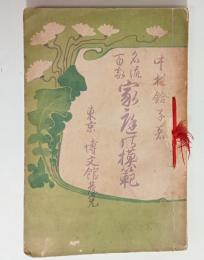 中村鈴子著
名流
百家
家庭の模範
東京 博文館発兌